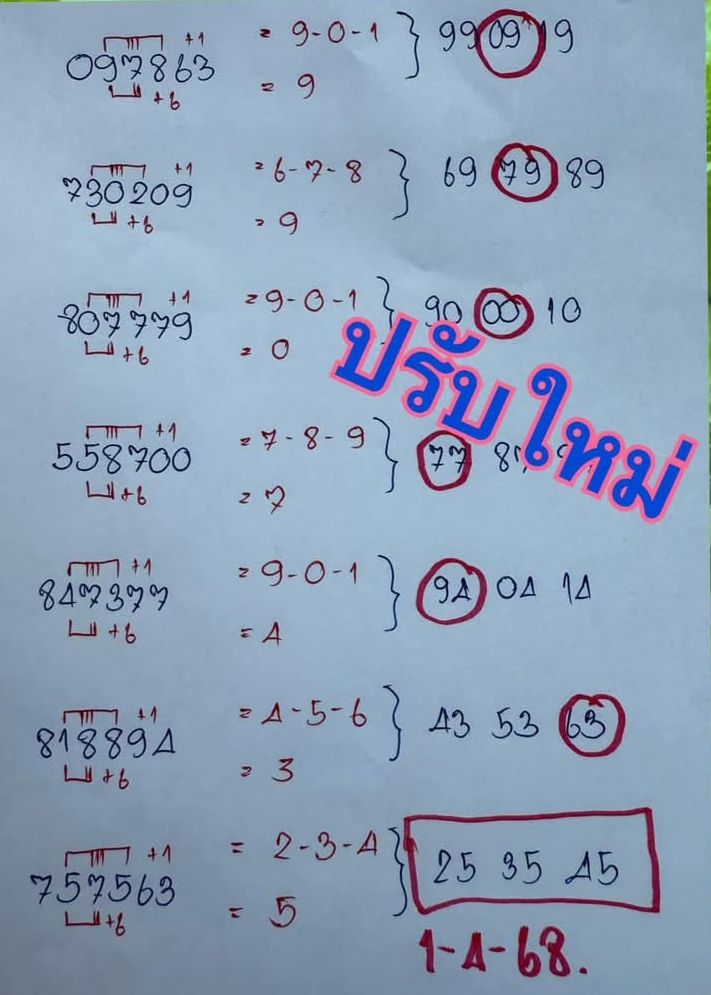 +1 = 9-0-1 } 99 09 19
097863
+6 = 9
+1 = 6-7-8 } 69 79 89
730209
+6 = 9
+1 = 9-0-1 } 90 00 10
807779
+6 = 0
ปรับใหม่
+1 = 7-8-9 } 77
558700
+6 = 7
+1 = 9-0-1 } 94 04 14
847377
+6 = 4
+1 = 4-5-6 } 43 53 63
818894
+6 = 3
+1 = 2-3-4 } 25 35 45
757563
+6 = 5
1-4-68.